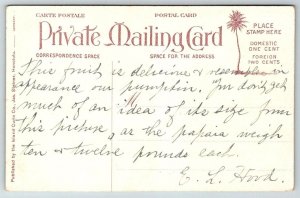 CARTE POSTALE
POSTAL CARD
Private Mailing Card
PLACE
STAMP HERE
DOMESTIC
ONE CENT
FOREIGN
TWO CENTS
CORRESPONDENCE SPACE
SPACE FOR THE ADDRESS
This fruit is delicious & resembles in
appearance our pumpkin. You don't get
much of an idea of its size from
this picture, as the papaia weigh
ten & twelve pounds each.
E. L. Hood.
Published by the Island Curio Co.